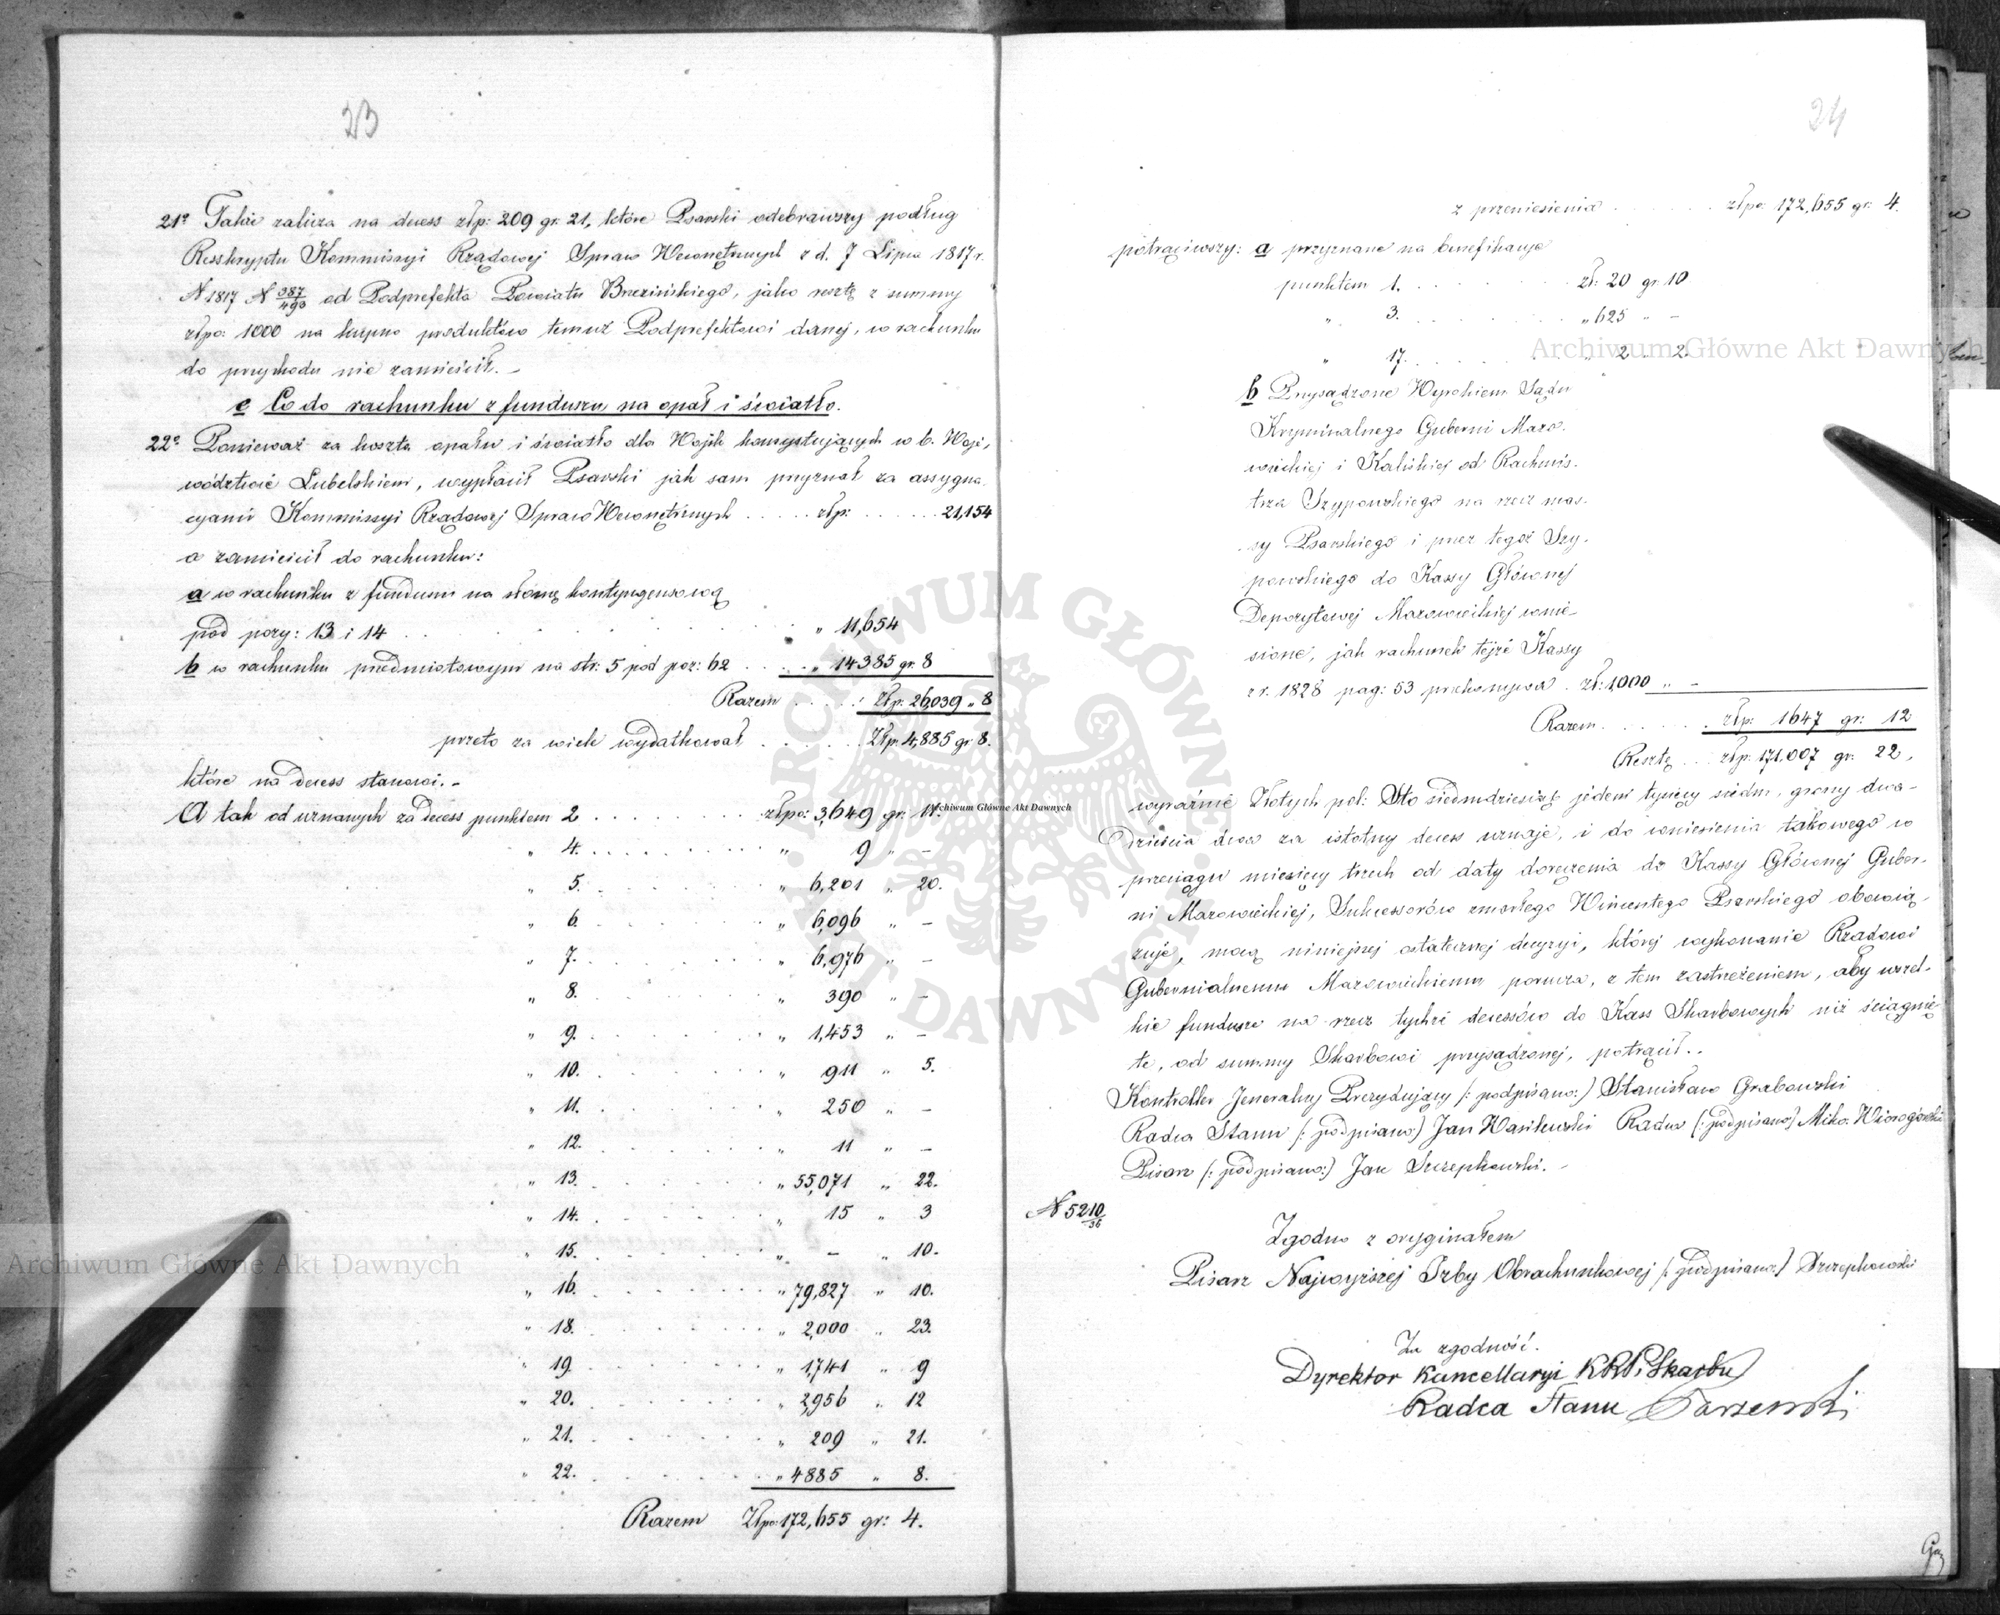 23
21° Także zalicza na decess złp: 209 gr. 21, które Psarski odebrawszy podług
Resskryptu Kommissyi Rządowej Spraw Wewnętrznych z d. 7 Lipca 1817 r.
N 1817 N 387/493 od Podprefekta Powiatu Brzezińskiego, jako resztę z summy
złpo: 1000 na kupno produktów temuż Podprefektowi danej, w rachunku
do przychodu nie zamieścił. -
c Co do rachunku z funduszu na opał i światło.
22° Ponieważ za koszta opału i światło dla Wojsk konsystujących w b. Woje,
wództwie Lubelskiem, wypłacił Psarski jak sam przyznał za assygna
cyami Kommissyi Rządowej Spraw Wewnętrznych ..... złp: ...... 21,154
a zamieścił do rachunku:
a w rachunku z funduszu na słomę kontyngensową
pod pozy: 13 i 14 . . . . . . „ 11,654
b w rachunku przedmiotowym na str: 5 pod poz: 62 ..... „ 14385 gr. 8
Razem ..... Złp. 26,039 „ 8
przeto za wiele wydatkował ...... Złp. 4,885 gr 8.
które na decess stanowi. -
A tak od uznanych za decess punktem 2 ........ złpo: 3,649 gr. 11.
„ 4. ......... „ 9 „ -
„ 5. ......... „ 6,201 „ 20.
„ 6. ......... „ 6,096 „ -
„ 7. ......... „ 6,976 „ -
„ 8. ......... „ 390 „ -
„ 9. ......... „ 1,453 „ -
„ 10. ......... „ 911 „ 5.
„ 11. ......... „ 250 „ -
„ 12. ......... „ 11 „ -
„ 13. ......... „ 55,071 „ 22.
„ 14. ......... „ 15 „ 3
„ 15. ......... „ - „ 10.
„ 16. ......... „ 79,827 „ 10.
„ 18. ......... „ 2,000 „ 23.
„ 19. ......... „ 1,741 „ 9
„ 20. ......... „ 2,956 „ 12
„ 21. ......... „ 209 „ 21.
„ 22. ......... „ 4885 „ 8.
Razem Złpo: 172,655 gr: 4.
24
z przeniesienia ....... złpo: 172,655 gr: 4.
potrąciwszy: a przyznane na benefikacyę
punktem 1. ....... zł: 20 gr. 10
„ 3. ....... „ 625 „ -
„ 17. ....... „ 2 .. 2.
b Przysądzone Wyrokiem Sądu
Kryminalnego Gubernii Mazo.
wieckiej i Kaliskiej od Rachmis.
trza Szypowskiego na rzecz mas.
sy Psarskiego i przez tegoż Szy.
powskiego do Kassy Głównej
Depozytowej Mazowieckiej wnie-
sione, jak rachunek tejże Kassy
z r. 1828 pag: 53 przekonywa . zł: 1,000 „ -
Razem ...... złp: 1647 gr: 12
Resztę ... złp: 171,007 gr: 22,
wyraźnie Złotych pol: Sto siedmdziesiąt jeden tysięcy siedm, groszy dwa-
dzieścia dwa za istotny decess uznaje, i do wniesienia takowego w
przeciągu miesięcy trzech od daty doręczenia do Kassy Głównej Guber-
ni Mazowieckiej, Sukcessorów zmarłego Wincentego Psarskiego obowią.
zuje, mocą niniejszej ostatecznej decyzyi, której wykonanie Rządowi
Gubernialnemu Mazowieckiemu porucza, z tem zastrzeżeniem, aby wszel-
kie fundusze na rzecz tychże decessów do Kass Skarbowych już ściągnię-
te, od summy Skarbowi przysądzonej, potrącił..
Kontroller Jeneralny Prezydujący (: podpisano:) Stanisław Grabowski
Radca Stanu (: podpisano) Jan Wasilewski Radca (: podpisano) Miko. Wiorogórski
Pisarz (: podpisano:) Jan Szczepkowski. -
N 5210/36
Zgodno z oryginałem
Pisarz Najwyższej Izby Obrachunkowej (: podpisano:) Szczepkowski
Za zgodność.
Dyrektor Kancellaryi KRPiSkarbu
Radca Stanu
ARCHIWUM GŁÓWNE AKT DAWNYCH
Archiwum Główne Akt Dawnych
Archiwum Główne Akt Dawnych
Archiwum Główne Akt Dawnych